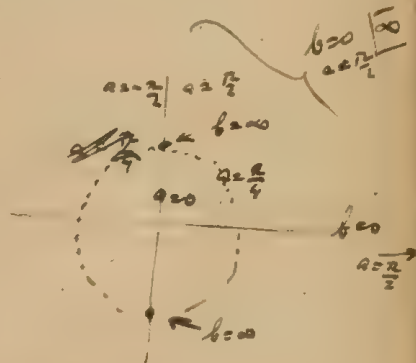 b=0 ∞
a=π/2
a=-π/2 a=π/2
π/4 b=∞
a=π/4
a=0
b=0
a=π/2
b=∞